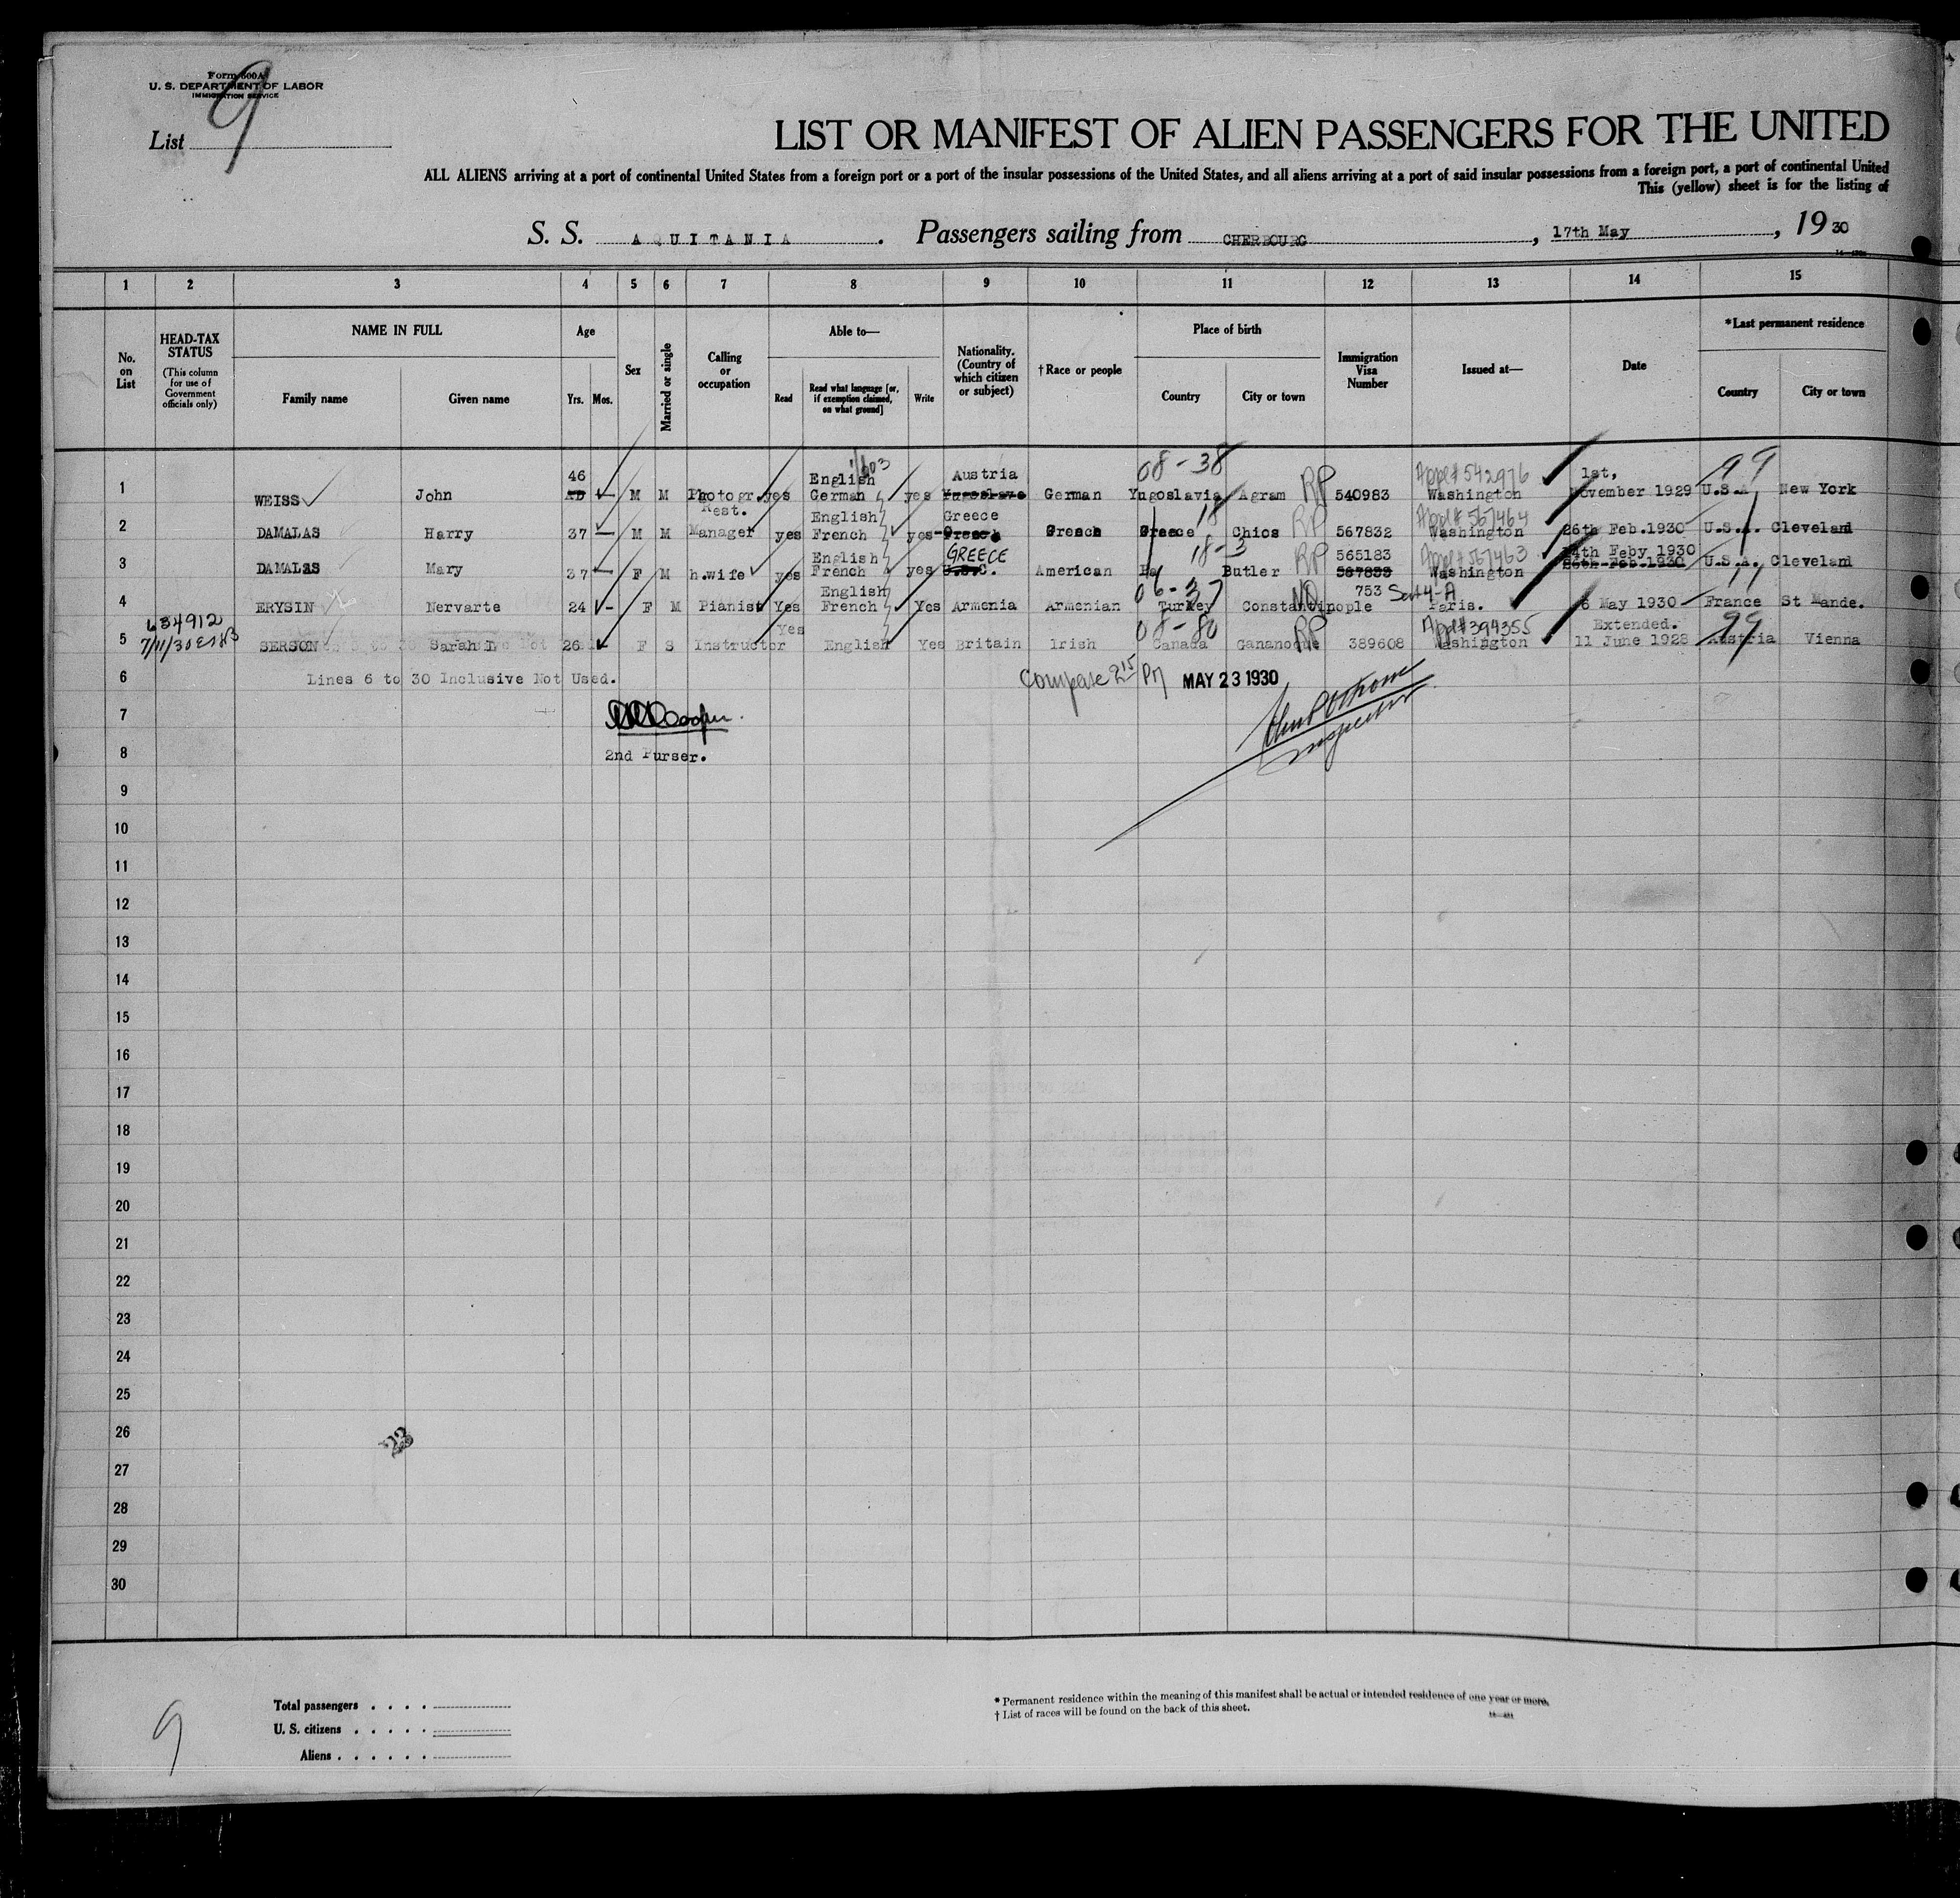 Form 500A
U. S. DEPARTMENT OF LABOR
IMMIGRATION SERVICE
List 9
LIST OR MANIFEST OF ALIEN PASSENGERS FOR THE UNITED
ALL ALIENS arriving at a port of continental United States from a foreign port or a port of the insular possessions of the United States, and all aliens arriving at a port of said insular possessions from a foreign port, a port of continental United
This (yellow) sheet is for the listing of
S. S. AQUITANIA. Passengers sailing from CHERBOURG, 17th May, 1930
1 2 3 4 5 6 7 8 9 10 11 12 13 14 15
No. on List
HEAD-TAX STATUS
(This column for use of Government officials only)
NAME IN FULL
Family name Given name
Age
Yrs. Mos.
Sex
Married or single
Calling or occupation
Able to—
Read
Read what language [or, if exemption claimed, on what ground]
Write
Nationality. (Country of which citizen or subject)
†Race or people
Place of birth
Country City or town
Immigration Visa Number
Issued at—
Date
*Last permanent residence
Country City or town
46 English Austria 08-38 Appl# 542976 1st, 99
1 WEISS John M M Photogr. yes German yes Yugoslave German Yugoslavia Agram RP 540983 Washington November 1929 U.S.A. New York
Rest. English Greece 18 Appl# 567464
2 DAMALAS Harry 37 — M M Manager yes French yes Greece Greece Chios RP 567832 Washington 26th Feb.1930 U.S.A. Cleveland
English GREECE 18-3 565183 Appl# 567463 14th Feby 1930
3 DAMALAS Mary 37 — F M h.wife yes French yes U.S.C. American Pa Butler RP 567833 Washington 26th Feb.1930 U.S.A. Cleveland
English 06-37 NQ 753 Sect 4-A
4 ERYSIN Nervarte 24 - F M Pianist Yes French Yes Armenia Armenian Turkey Constantinople Paris. 6 May 1930 France St Mande.
634912 Yes 08-80 Appl# 394355 Extended. 99
5 7/11/30 SERSON Sarah 26 F S Instructor English Yes Britain Irish Canada Gananoque RP 389608 Washington 11 June 1928 Austria Vienna
6 Lines 6 to 30 Inclusive Not Used. MAY 23 1930
7
Inspector
8 2nd Purser.
9
10
11
12
13
14
15
16
17
18
19
20
21
22
23
24
25
26
23
27
28
29
30
Total passengers . . . .
U. S. citizens . . . . .
Aliens . . . . . .
9
* Permanent residence within the meaning of this manifest shall be actual or intended residence of one year or more.
† List of races will be found on the back of this sheet.